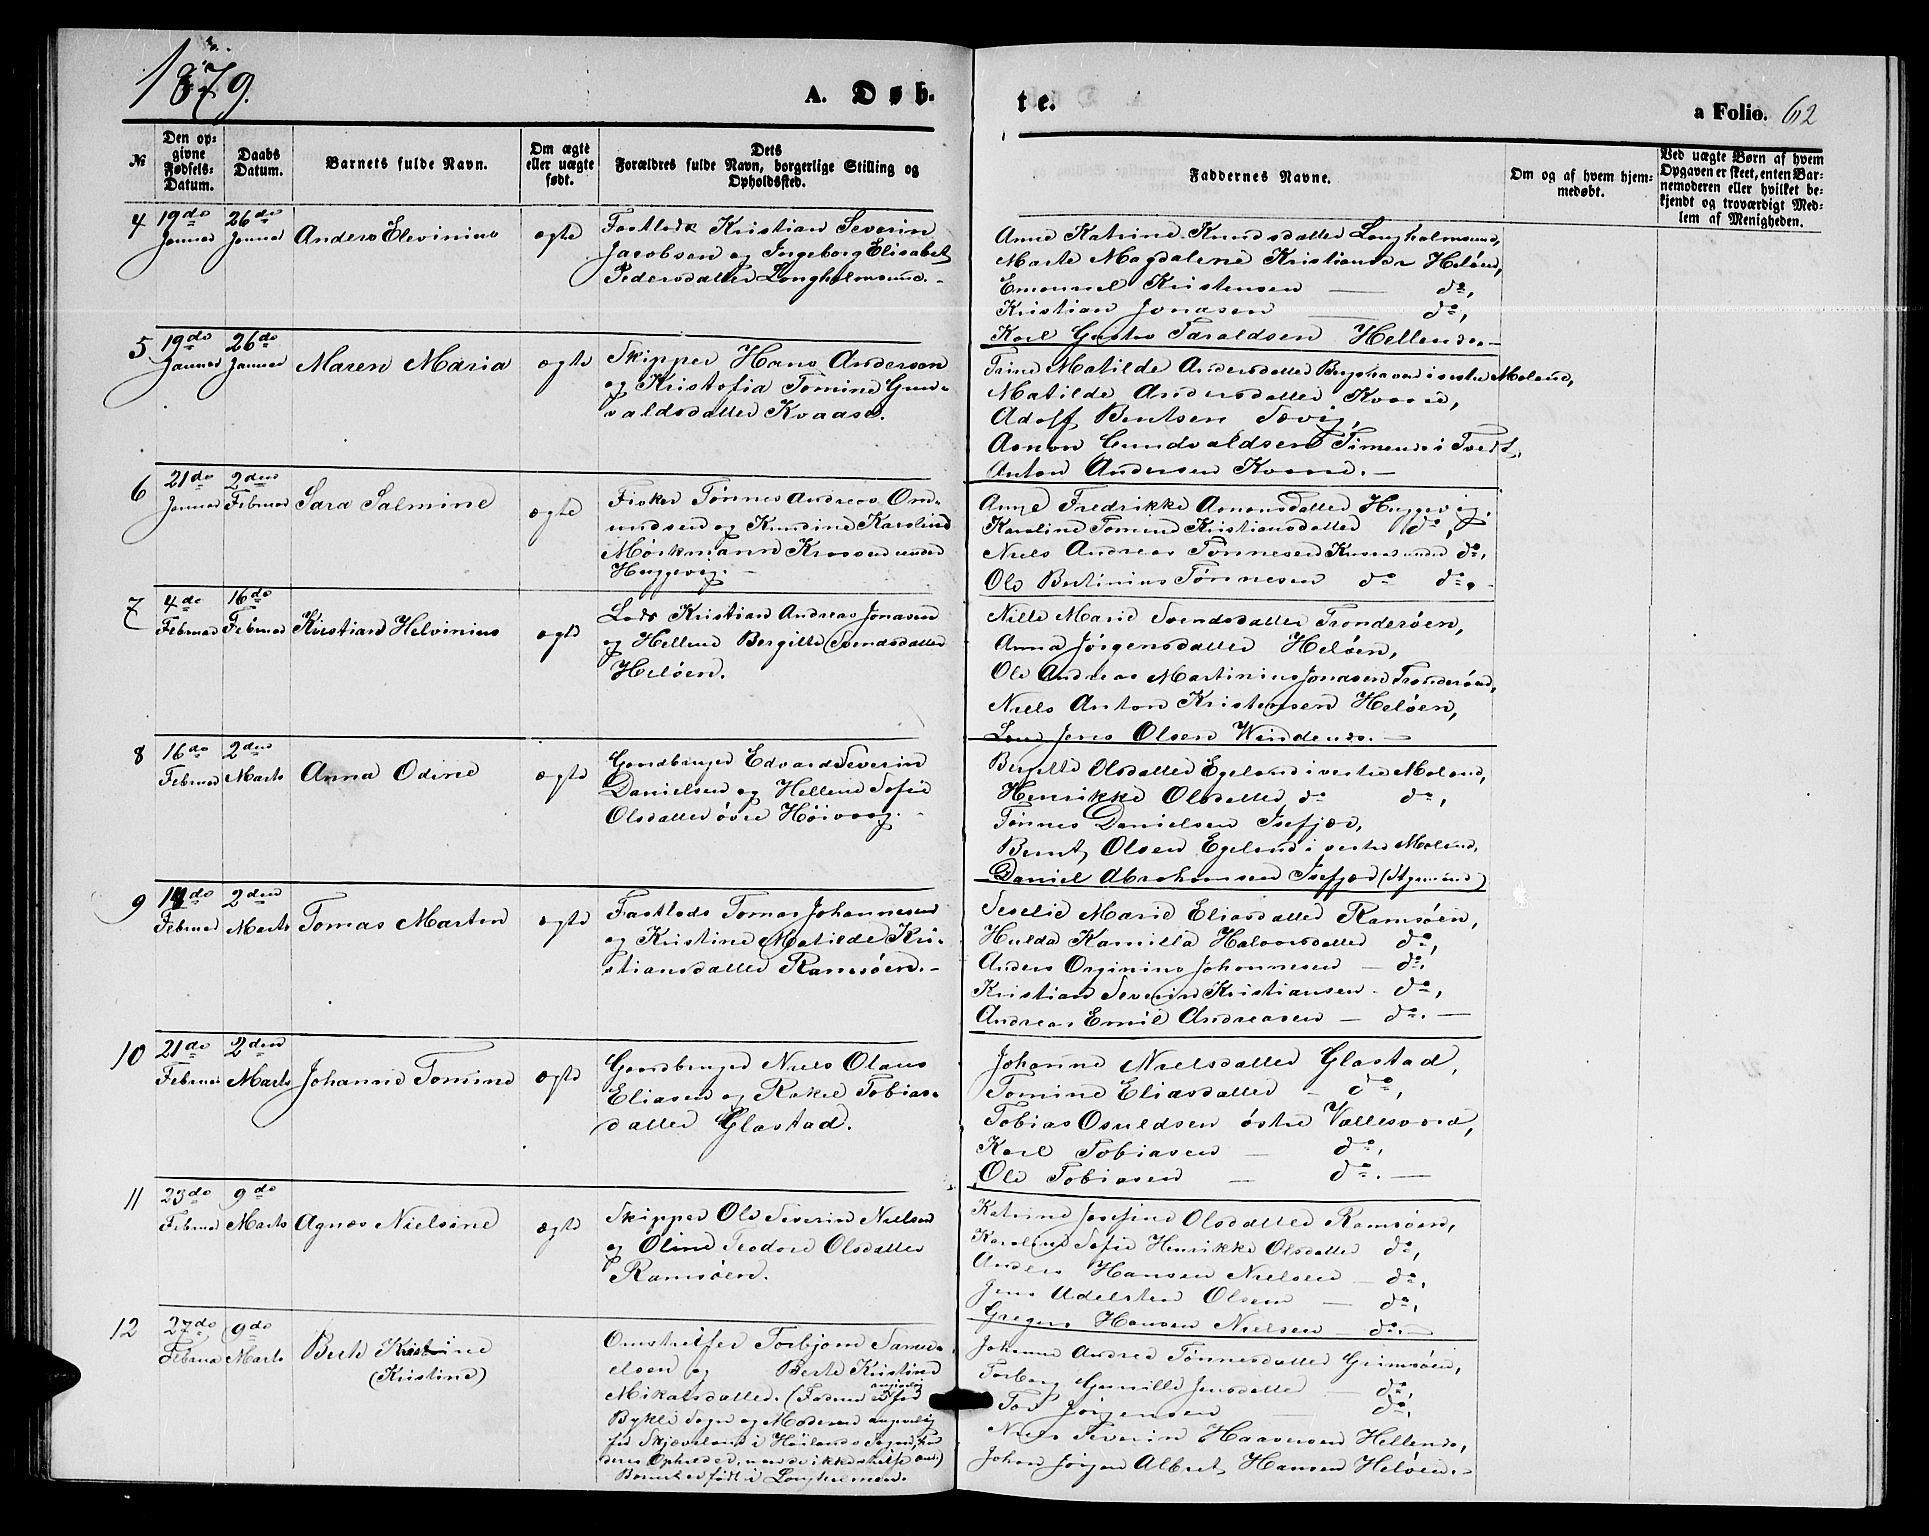 1879.
A. Døb-
te.
a Folio. 62
№
Den op-
givne
Fødsels-
Datum.
Daabs
Datum.
Barnets fulde Navn.
Om ægte
eller uægte
født.
Dets
Forældres fulde Navn, borgerlige Stilling og
Opholdssted.
Faddernes Navne.
Om og af hvem hjem-
medøbt.
Ved uægte Børn af hvem
Opgaven er skeet, enten Bar-
nemoderen eller hvilket be-
kjendt og troværdigt Med-
lem af Menigheden.
4 19de Januar 26de Januar Anders Elevinius ægte
Fastlods Kristian Severin
Jacobsen og Ingeborg Elisabet
Pedersdatter Longholmsund.
Anne Katrine Knudsdatter Longholmsund,
Marte Magdalene Kristiansdr Heløen,
Emanuel Kristensen — do,
Kristian Jonasen — do,
Karl Gustav Taraldsen
5 19de Januar 26de Januar Maren Maria ægte
Skipper Hans Andersen
og Kristofia Tomine Gun-
valdsdatter Kvaase.
Trine Matilde Andersdatter i vestre Moland,
Matilde Andersdatter Kvaase,
Adolf Bentsen Sævig,
Aanon Gundvaldsen i Tveit,
Anton Andersen Kvaase. —
6 21de Januar 2den Februar Sara Salmine ægte
Fisker Tønnes Andreas Om-
undsen og Knudine Karoline
Mørkmann under
Huggevig. —
Anne Fredrikke Aanonsdatter Huggevig,
Karoline Tomine Kristiansdatter do,
Niels Andreas Tønnesen do,
Ole Bertinius Tønnesen do do. -
7 4de Februar 16de Februar Kristian Helvinius ægte
Lods Kristian Andreas Jonasen
og Hellene Bergitte Svendsdatter
Heløen.
Nille Marie Svendsdatter Tronderøen,
Anna Jørgensdatter Heløen,
Ole Andreas Martinius Jonasen Tronderøen,
Niels Anton Kristensen Heløen,
Jens Olsen
8 16de Februar 2den Marts Anna Odine ægte
Gaardbruger Edvard Severin
Danielsen og Hellene Sofie
Olsdatter øvre Høivaag.
Bergitte Olsdatter Egeland i vestre Moland,
Henrikke Olsdatter do do,
Tønnes Danielsen Isefjær,
Bernt Olsen Egeland i vestre Moland,
Daniel Abrahamsen Isefjær
9 Februar 2den Marts Tomas Marten ægte
Fastlods Tomas Johannesen
og Kristine Matilde Kri-
stiansdatter Ramsøen. -
Seselie Marie Eliasdatter Ramsøen,
Hulda Kamilla Halvorsdatter do,
Anders Orginius Johannesen — do,
Kristian Severin Kristiansen - do,
Andreas Emil Andreasen — do. —
10 21de Februar 2den Marts Johanne Tomine ægte
Gaardbruger Niels Olaus
Eliasen og Rakel Tobias-
datter Glastad.
Johanne Nielsdatter Glastad,
Tomine Eliasdatter - do,
Tobias Osuldsen østre Vallesværd,
Karl Tobiasen — do,
Ole Tobiasen — do. —
11 23de Februar 9de Marts Agnes Nielsine ægte
Skipper Ole Severin Nielsen
og Oline Teodore Olsdatter
Ramsøen.
Katrine Josefine Olsdatter Ramsøen,
Karoline Sofie Henrikke Olsdatter do,
Anders Hansen Nielsen — do,
Jens Adelsten Olsen — do,
Gregers Hansen Nielsen — do. —
12 27de Februar 9de Marts Berte Kristine
(Kristine)
Omstreifer Torbjørn Samu-
elsen og Berte Kristine
Mikalsdatter. (Faderen angivelig fød i
Bykle Sogn og Moderen angivelig
fød Skjæveland i Høilands Sogn,
Barnet er født i
Johanne Andrea Tønnesdatter Grimsøen,
Torborg Gunille Jensdatter do,
Tor Jørgensen — do,
Niels Severin Haavorsen
Johan Jørgen Albret Hansen Heløen. -